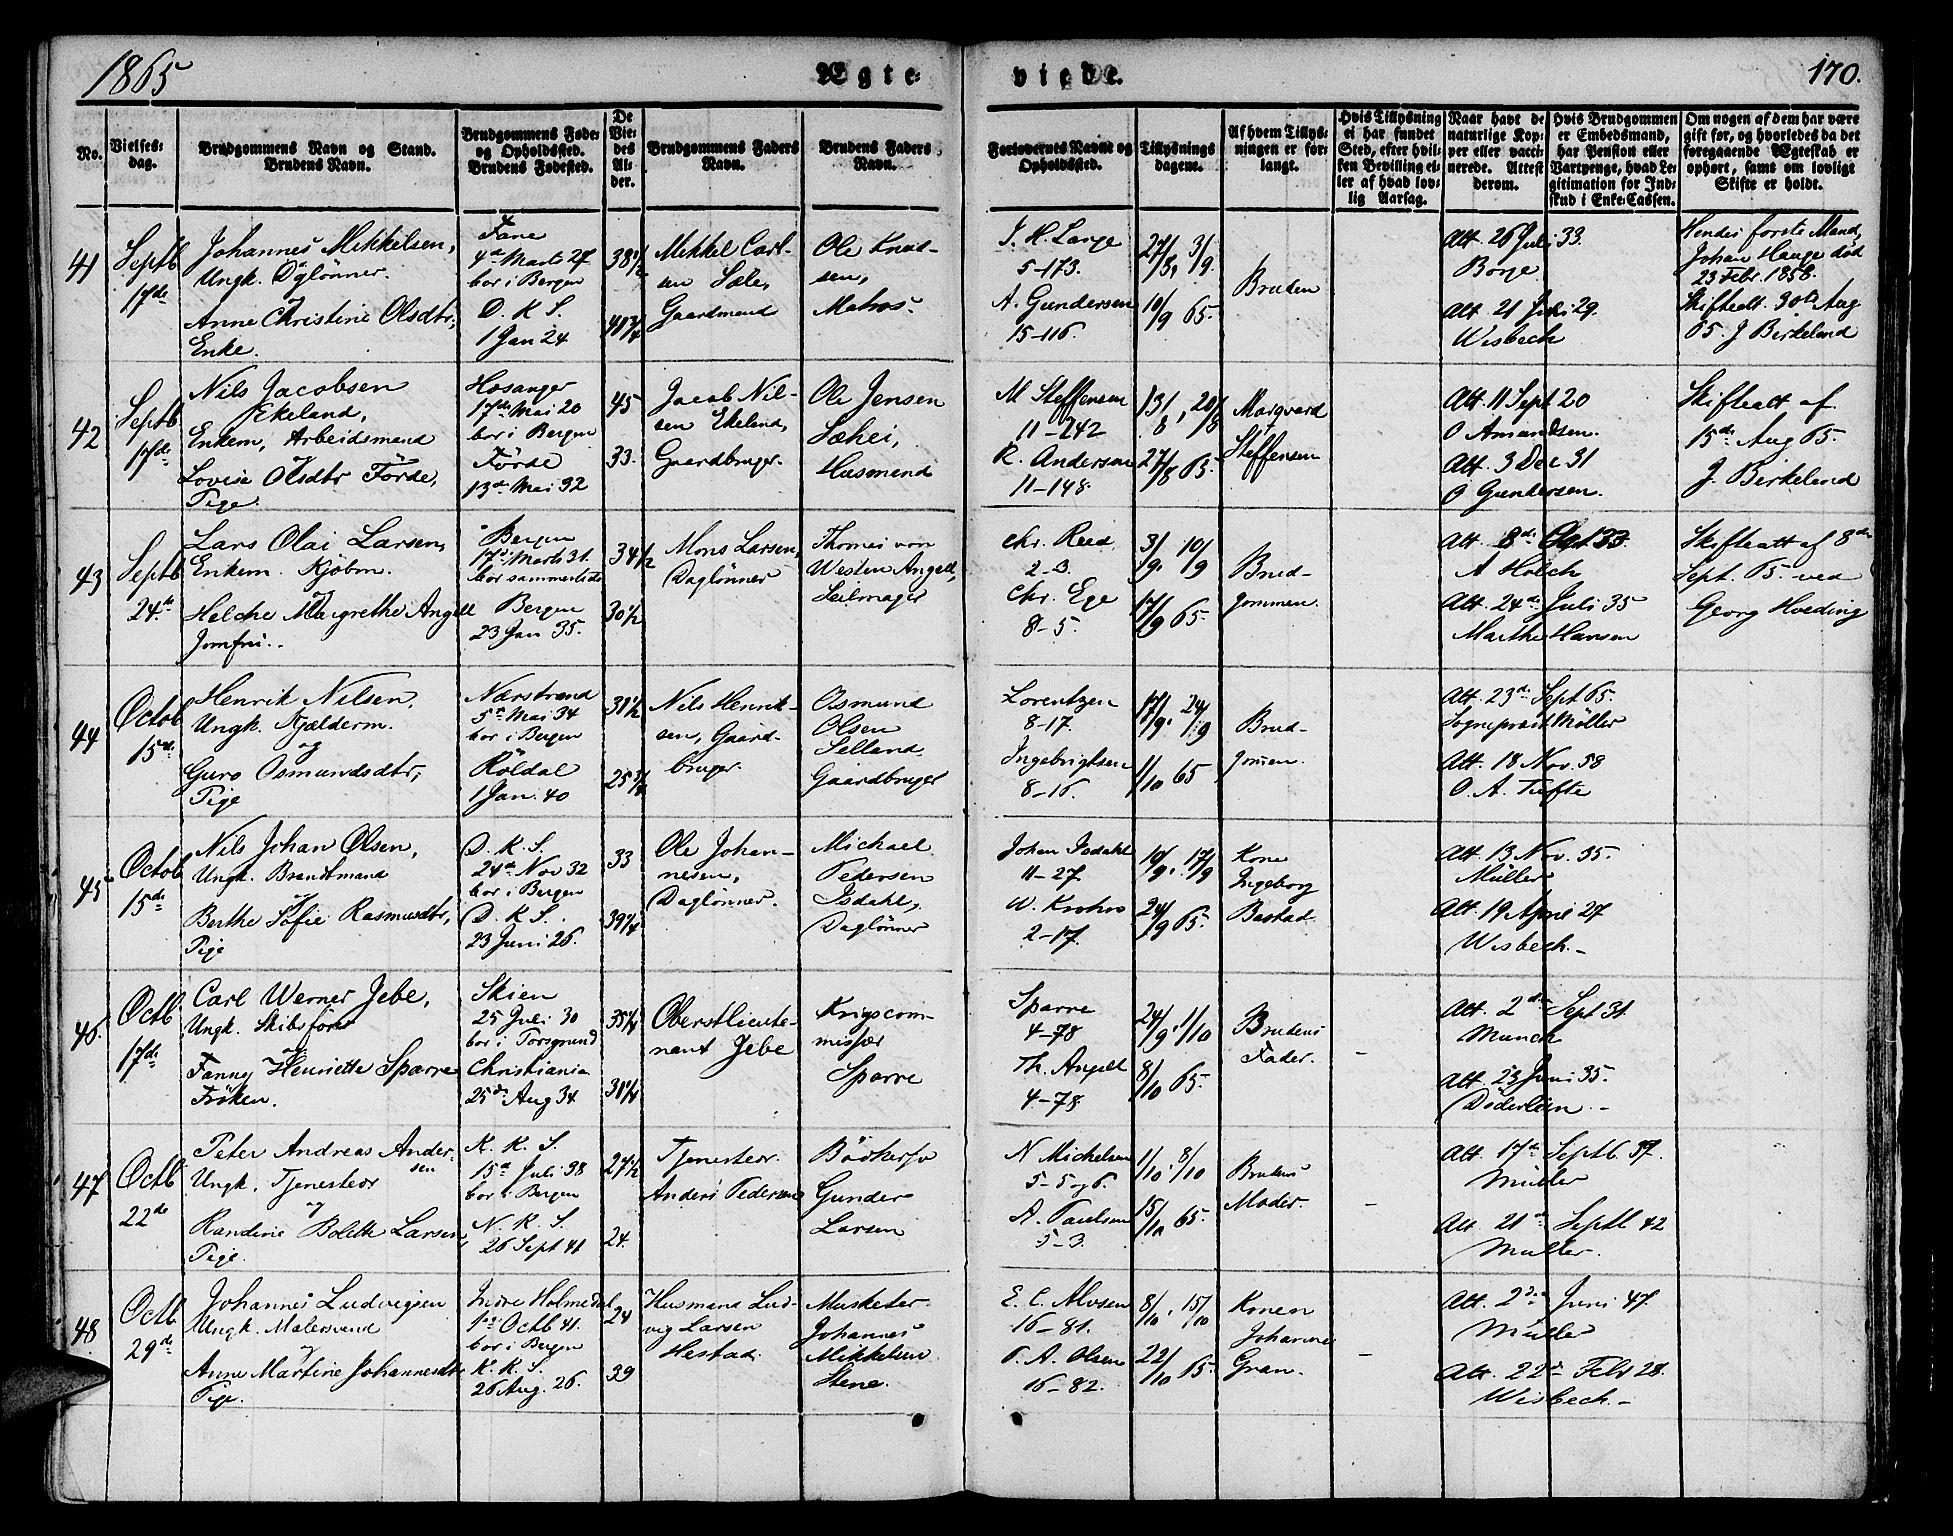 1865
Ægte-
viede.
170.
No.
Vielses-
dag.
Brudgommens Navn og Stand.
Brudens Navn.
Brudgommens Føde-
og Opholdssted.
Brudens Fødested.
De
Vie-
des
Al-
der.
Brudgommens Faders
Navn.
Brudens Faders
Navn.
Forlovernes Navne og
Opholdssted.
Tillysnings
dagene.
Af hvem Tillys-
ningen er for-
langt.
Hvis Tillysning
ei har fundet
Sted, efter hvil-
ken Bevilling el-
ler af hvad lov-
lig Aarsag.
Naar havt de
naturlige Kop-
per eller vacci-
nerede. Attest
derom.
Hvis Brudgommen
er Embedsmand,
har Pension eller
Vartpenge, hvad Le-
gitimation for Ind-
skud i Enke-Cassen.
Om nogen af dem har være
gift før, og hvorledes da det
foregaaende Ægteskab er
ophørt, samt om lovligt
Skifte er holdt.
41
Septb
17de
Johannes Mikkelsen,
Ungk. Daglønner
og
Anne Christine Olsdtr,
Enke.
Fane
4de Marts 27
bor i Bergen
D. K. S.
1 Jan 24
38 1/2
41 3/4
Mikkel Carl-
sen Sæle,
Gaardmand
Ole Knud-
sen,
Matros
J. H. Lange
5-173.
A. Gundersen
15-116.
27/8, 3/9.
10/9 65.
Bruden
Att. 26 Juli 33.
Borge
Att. 21 Juli 29.
Wisbech
Hendes første Mand,
Johan Hauge død
23 Febr. 1858.
Skifteatt. 30te Aug
65. J Birkeland
42
Septb
17de
Nils Jacobsen
Ekeland,
Enkem, Arbeidsmand
og
Lovise Olsdtr Förde,
Pige.
Hosanger
17de Mai 20
bor i Bergen
Förde
13de Mai 32
45
33.
Jacob Nil-
sen Ekeland,
Gaardbruger.
Ole Jensen
Sæhei,
Husmand
M Steffensen
11-242
R. Andersen
11-148.
13/8, 20/8
27/8 65.
Marqvard
Steffensen
Att. 11 Sept 20
O Amundsen.
Att. 3 Dec 31
O Gundersen.
Skifteatt af
15de Aug 65.
J. Birkeland
43
Septb
24de
Lars Olai Larsen,
Enkem. Kjøbm.
og
Helche Margrethe Angell
Jomfru.
Bergen
17de Marts 31.
bor sammesteds
Bergen
23 Jan 35.
34 1/2
30 1/2
Mons Larsen,
Daglønner
Thomas von
Westen Angell,
Seilmager
Chr. Reed
2-3.
Chr. Ege
8-5.
3/9, 10/9
17/9 65.
Brud-
gommen.
Att. 8de Oct 33.
A Holch
Att. 24de Juli 35
Marthe Hansen
Skifteatt af 8de
Sept. 65. ved
Georg Hveding
44
Octob
15de
Henrik Nilsen,
Ungk. Kjælderm.
og
Guro Osmundsdtr,
Pige
Nærstrand
5te Mai 34
bor i Bergen
Röldal
1 Jan. 40
31 1/2
25 3/4
Nils Henrik-
sen, Gaard-
bruger.
Osmund
Olsen
Selland,
Gaardbruger
Lorentzen
8-17.
Ingebrigtsen
8-16.
17/9, 24/9
1/10 65
Brud-
gommen.
Att. 23de Sept 65.
Sognepræst Møller
Att. 18 Nov. 58
O. A. Tufte
45
Octob
15de
Nils Johan Olsen,
Ungk. Brandtmand
og
Berthe Sofie Rasmusdtr,
Pige
D. K. S.
24de Nov 32
bor i Bergen
D. K. S.
23 Juni 26.
33
39 1/4
Ole Johan-
nesen,
Daglønner.
Michael
Pedersen
Isdahl,
Daglønner
Johan Isdahl
11-27.
W. Krohn
2-17.
10/9, 17/9
24/9 65.
Kone
Ingeborg
Bastad
Att. 13 Nov. 35.
Müller
Att. 19 April 27
Wisbech.-
46.
Octb
17de
Carl Werner Jebe,
Ungk. Skibsfører
og
Fanny Henriette Sparre
Fröken.
Skien
25 Juli 30
bor i Porsgrund
Christiania
25de Aug 34
35 1/4
31 1/4
Oberstlieute-
nant Jebe
Krigscom-
missær
Sparre
Sparre
4-78
Th. Angell
4-78.
24/9, 1/10
8/10 65.
Brudens
Fader.
-
Att. 2de Sept 31.
Munch
Att. 23 Juni 35.
Döderlein.-
47
Octb
22de
Peter Andreas Ander-
sen
Ungk. Tjenestkar
og
Randine Bolette Larsen
Pige.
K. K. S.
15de Juli 38
bor i Bergen
N. K. S.
26 Sept 41
27 1/2
24.
Tjenestkar
Anders Pedersen
Bödkersv
Gunder
Larsen
N Michelsen
5-5 og 6.
A. Paulsen
5-3.
1/10, 8/10
15/10 65.
Brudens
Moder.
-
Att. 17de Septb 37.
Müller
Att. 21de Septb 42
Müller.
48.
Octb
29de
Johannes Ludvigsen
Ungk. Malersvend
og
Anne Martine Johannesdtr
Pige.
Indre Holmedal
1ste Octb 41.
bor i Bergen
K. K. S.
26 Aug. 26.
24
39
Husmand Lud-
vig Larsen
Hestad.
Musketer
Johannes
Mikkelsen
Stene.
E. C. Alvsen
16-81.
P. A. Olsen
16-82.
8/10, 15/10
22/10 65.
Konen
Johanne
Gran.
-
Att. 2den Juni 47.
Müller
Att. 22de Febr 28.
Wisbech.-